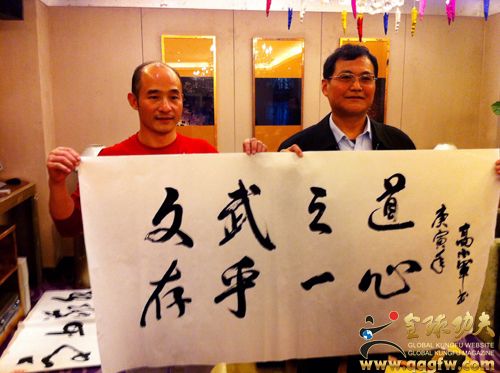 文武之道
存乎一心
庚寅年
高小軍书
全球功夫
GLOBAL KUNGFU WEBSITE
GLOBAL KUNGFU MAGAZINE
www.qqgfw.com